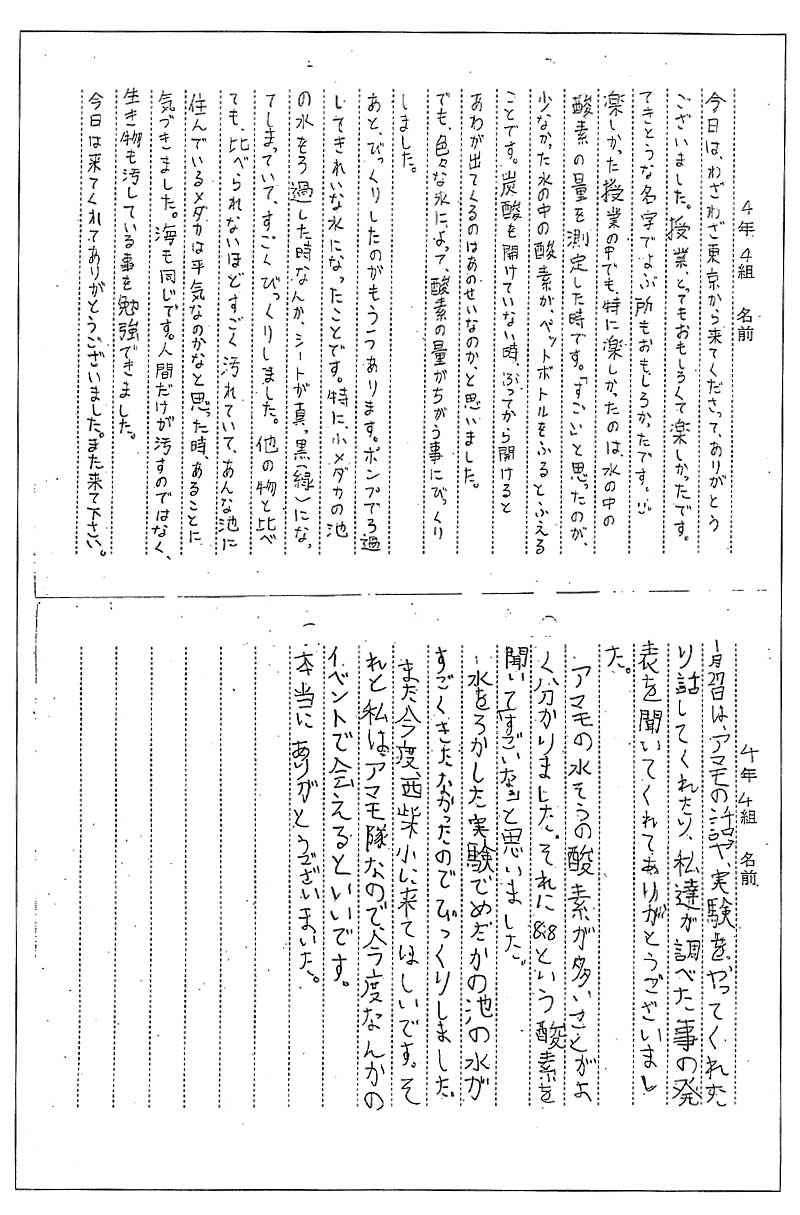 4年 4組 名前
今日は、わざわざ東京から来てくださって、ありがとう
ございました。授業、とてもおもしろくて楽しかったです。
てきとうな名字でよぶ所もおもしろかったです。
楽しかった授業の中でも、特に楽しかったのは、水の中の
酸素の量を測定した時です。「すごい」と思ったのが、
少なかった水の中の酸素が、ペットボトルをふるとふえる
ことです。炭酸を開けていない時、ふってから開けると
あわが出てくるのはあのせいなのか、と思いました。
でも、色々な水によって、酸素の量がちがう事にびっくり
しました。
あと、びっくりしたのがもう一つあります。ポンプでろ過
してきれいな水になったことです。特に、小メダカの池
の水をろ過した時なんか、シートが真っ黒(緑)にな
てしまっていて、すごくびっくりしました。他の物と比べ
ても、比べられないほどすごく汚れていて、あんな池に
住んでいるメダカは平気なのかなと思った時、あることに
気づきました。海も同じです。人間だけが汚すのではなく、
生き物も汚している事を勉強できました。
今日は来てくれてありがとうございました。また来て下さい。
4年 4組 名前
1月27日は、アマモの話や、実験をやってくれた
り話してくれたり、私達が調べた事の発
表を聞いてくれてありがとうございまし
た。
アマモの水そうの酸素が多いことがよ
く分かりました。それに8.8という酸素を
聞いて「すごいな」と思いました。
水をろかした実験でめだかの池の水が
すごくきたなかったのでびっくりしました。
また今度、西柴小に来てほしいです。そ
れと私はアマモ隊なので、今度なんかの
イベントで会えるといいです。
本当にありがとうございまいた。